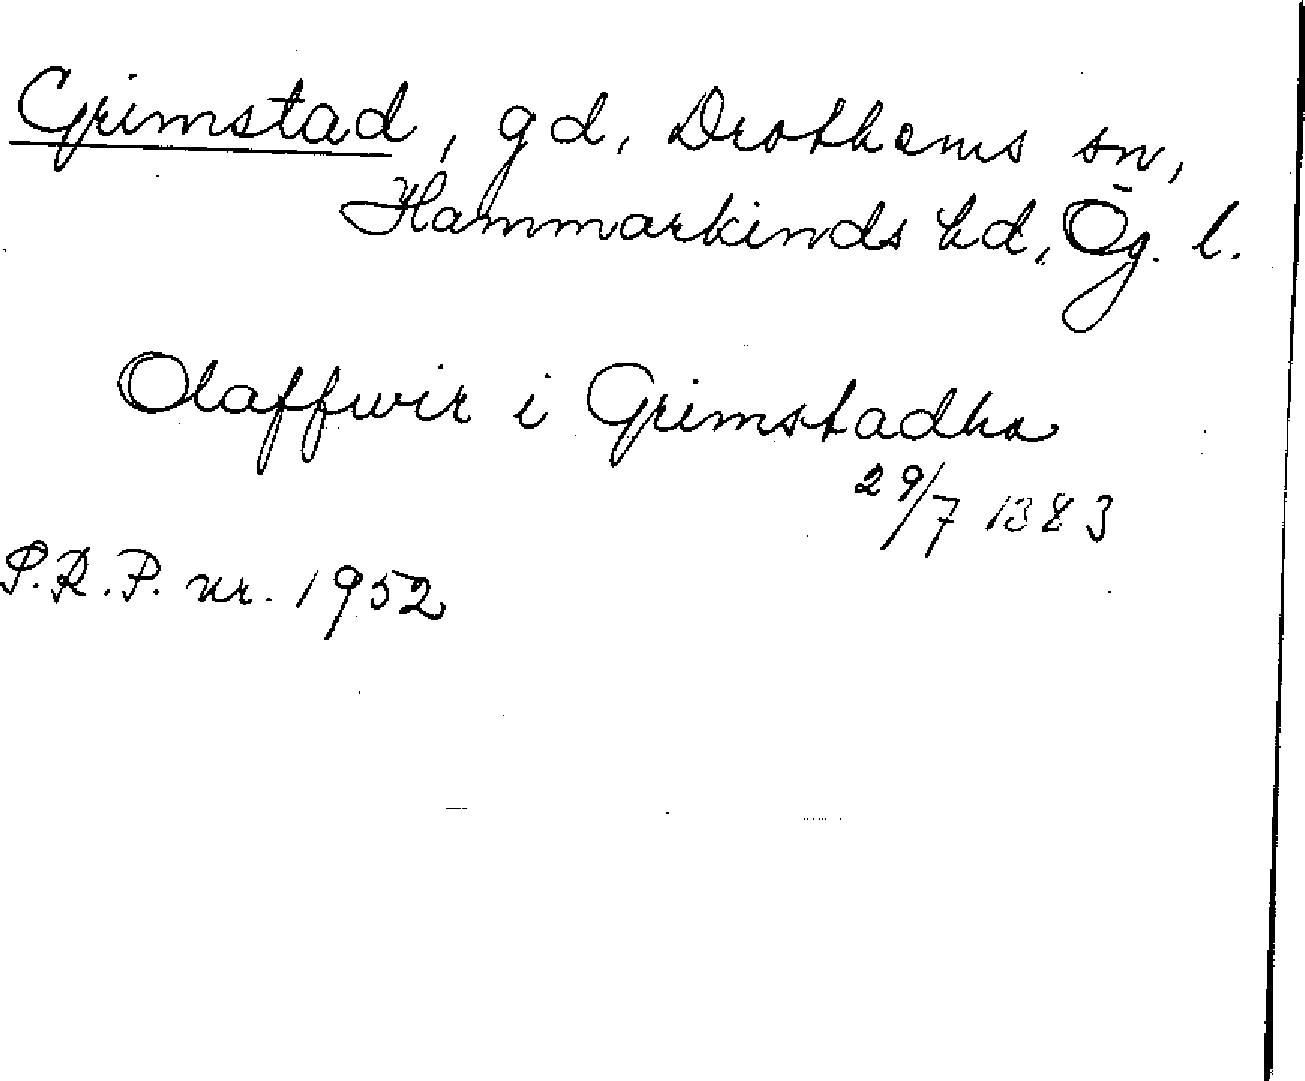 Grimstad, gd, Drothems sn,
Hammarkinds hd, Ög. l.
Olaffwir i Grimstadha
29/7 1383
S.R.P. nr. 1952